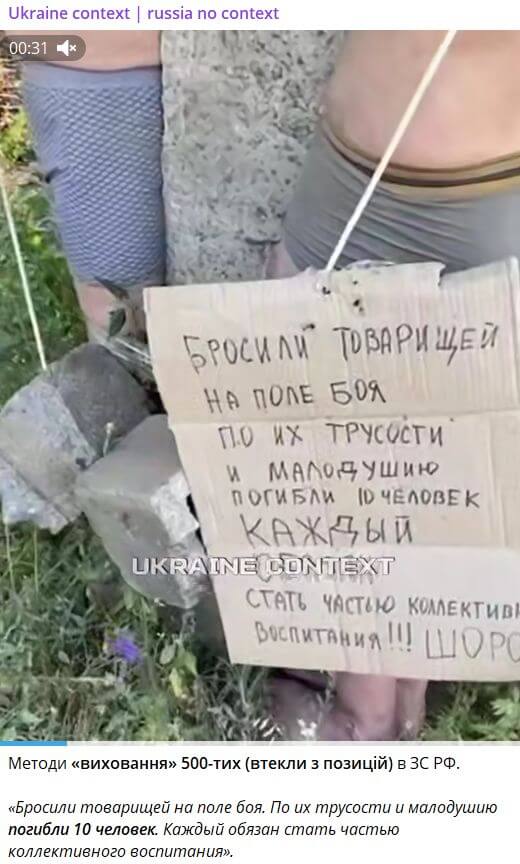 Ukraine context | russia no context
00:31
БРОСИЛИ ТОВАРИЩЕЙ
НА ПОЛЕ БОЯ
ПО ИХ ТРУСОСТИ
И МАЛОДУШИЮ
ПОГИБЛИ 10 ЧЕЛОВЕК
КАЖДЫЙ
UKRAINE CONTEXT
СТАТЬ ЧАСТЬЮ КОЛЛЕКТИВН
ВОСПИТАНИЯ!!! ШОРО
Методи «виховання» 500-тих (втекли з позицій) в ЗС РФ.
«Бросили товарищей на поле боя. По их трусости и малодушию
погибли 10 человек. Каждый обязан стать частью
коллективного воспитания».